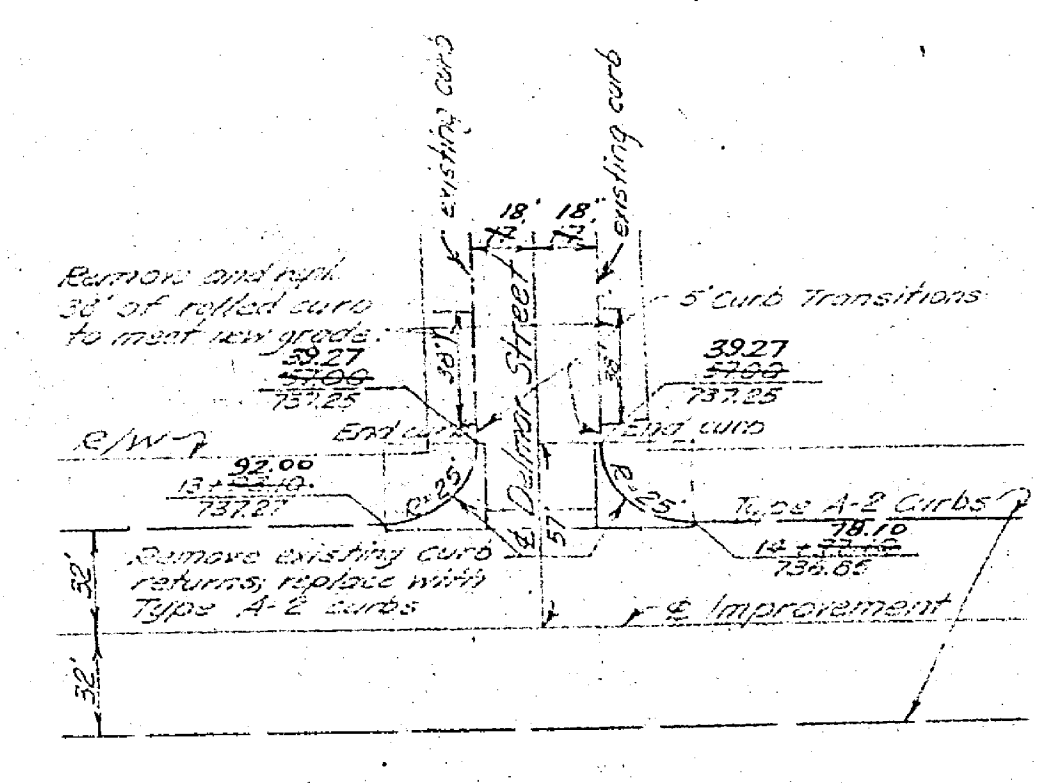 existing curb
existing curb
18'
18'
Remove and repl.
38' of rolled curb
to meet new grade.
5' Curb Transitions
38'
38'
℄ Delmar Street
39.27
57.00
737.25
39.27
57.00
737.25
R/W
End curb
End curb
92.00
13+
737.27
R=25'
R=25'
Type A-2 Curbs
78.10
14+
736.65
57'
Remove existing curb
returns; replace with
Type A-2 curbs
32'
℄ Improvement
32'